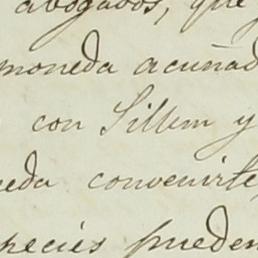 abogados, que
moneda acuñad
con Sillem y
eda convenirle
pecies pueden